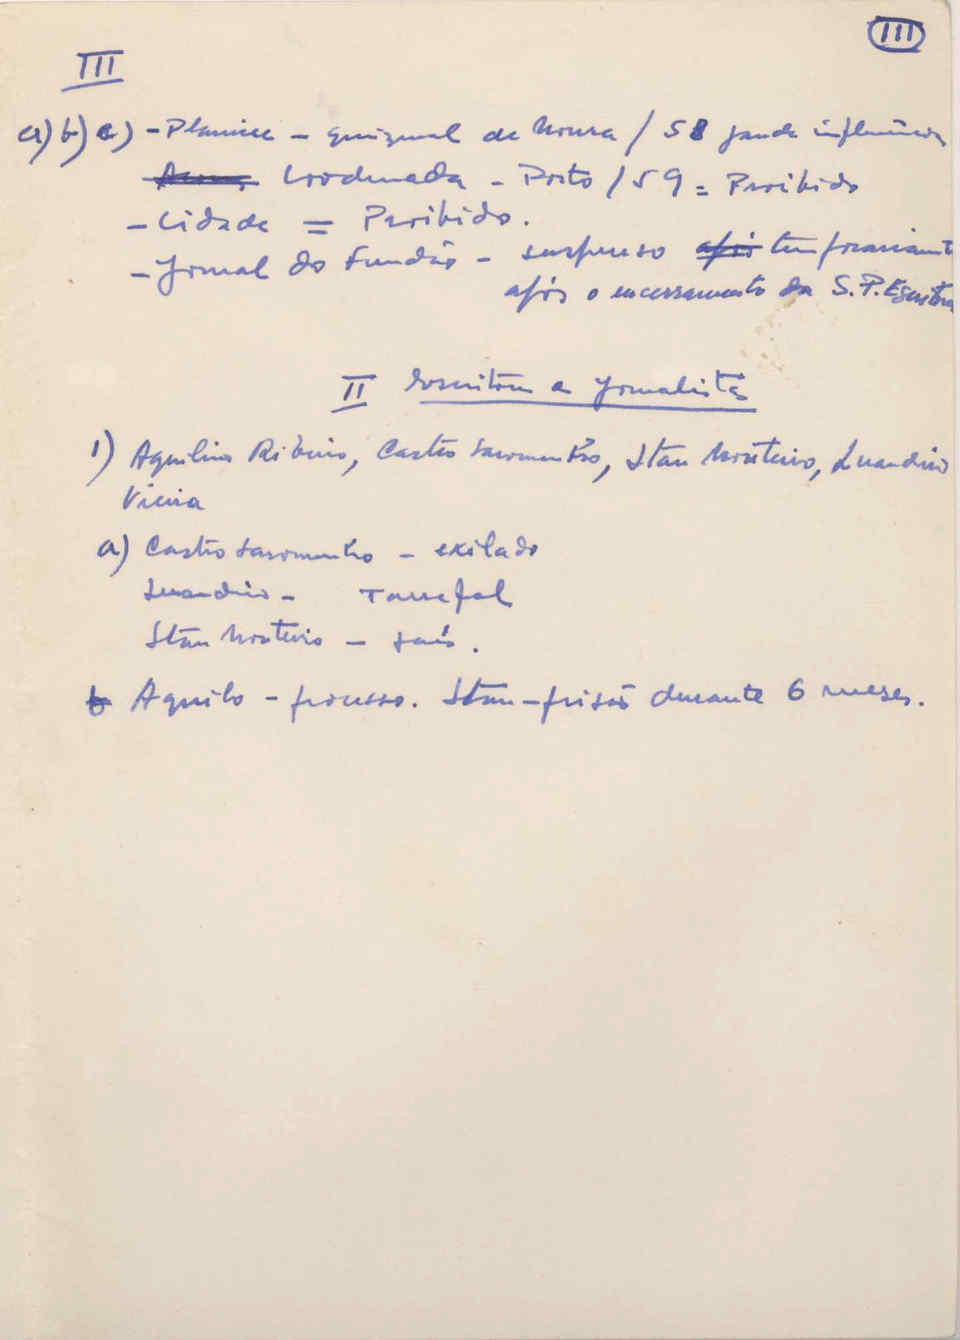 III
III
a) b) c) - Planicie - quinzenal de Moura / 58 grande influência
Coordenada - Porto / 59 = Proibido
- Cidade = Proibido.
- Jornal do Fundão - suspenso após temporariamente
após o encerramento da S. P. Escritores
II Escritores e Jornalistas
1) Aquilino Ribeiro, Castro Soromenho, Stau Monteiro, Luandino
Vieira
a) Castro Soromenho - exilado
Luandino - Tarrafal
Stau Monteiro - saiu.
b Aquilo - processo. Stau - prisão durante 6 meses.